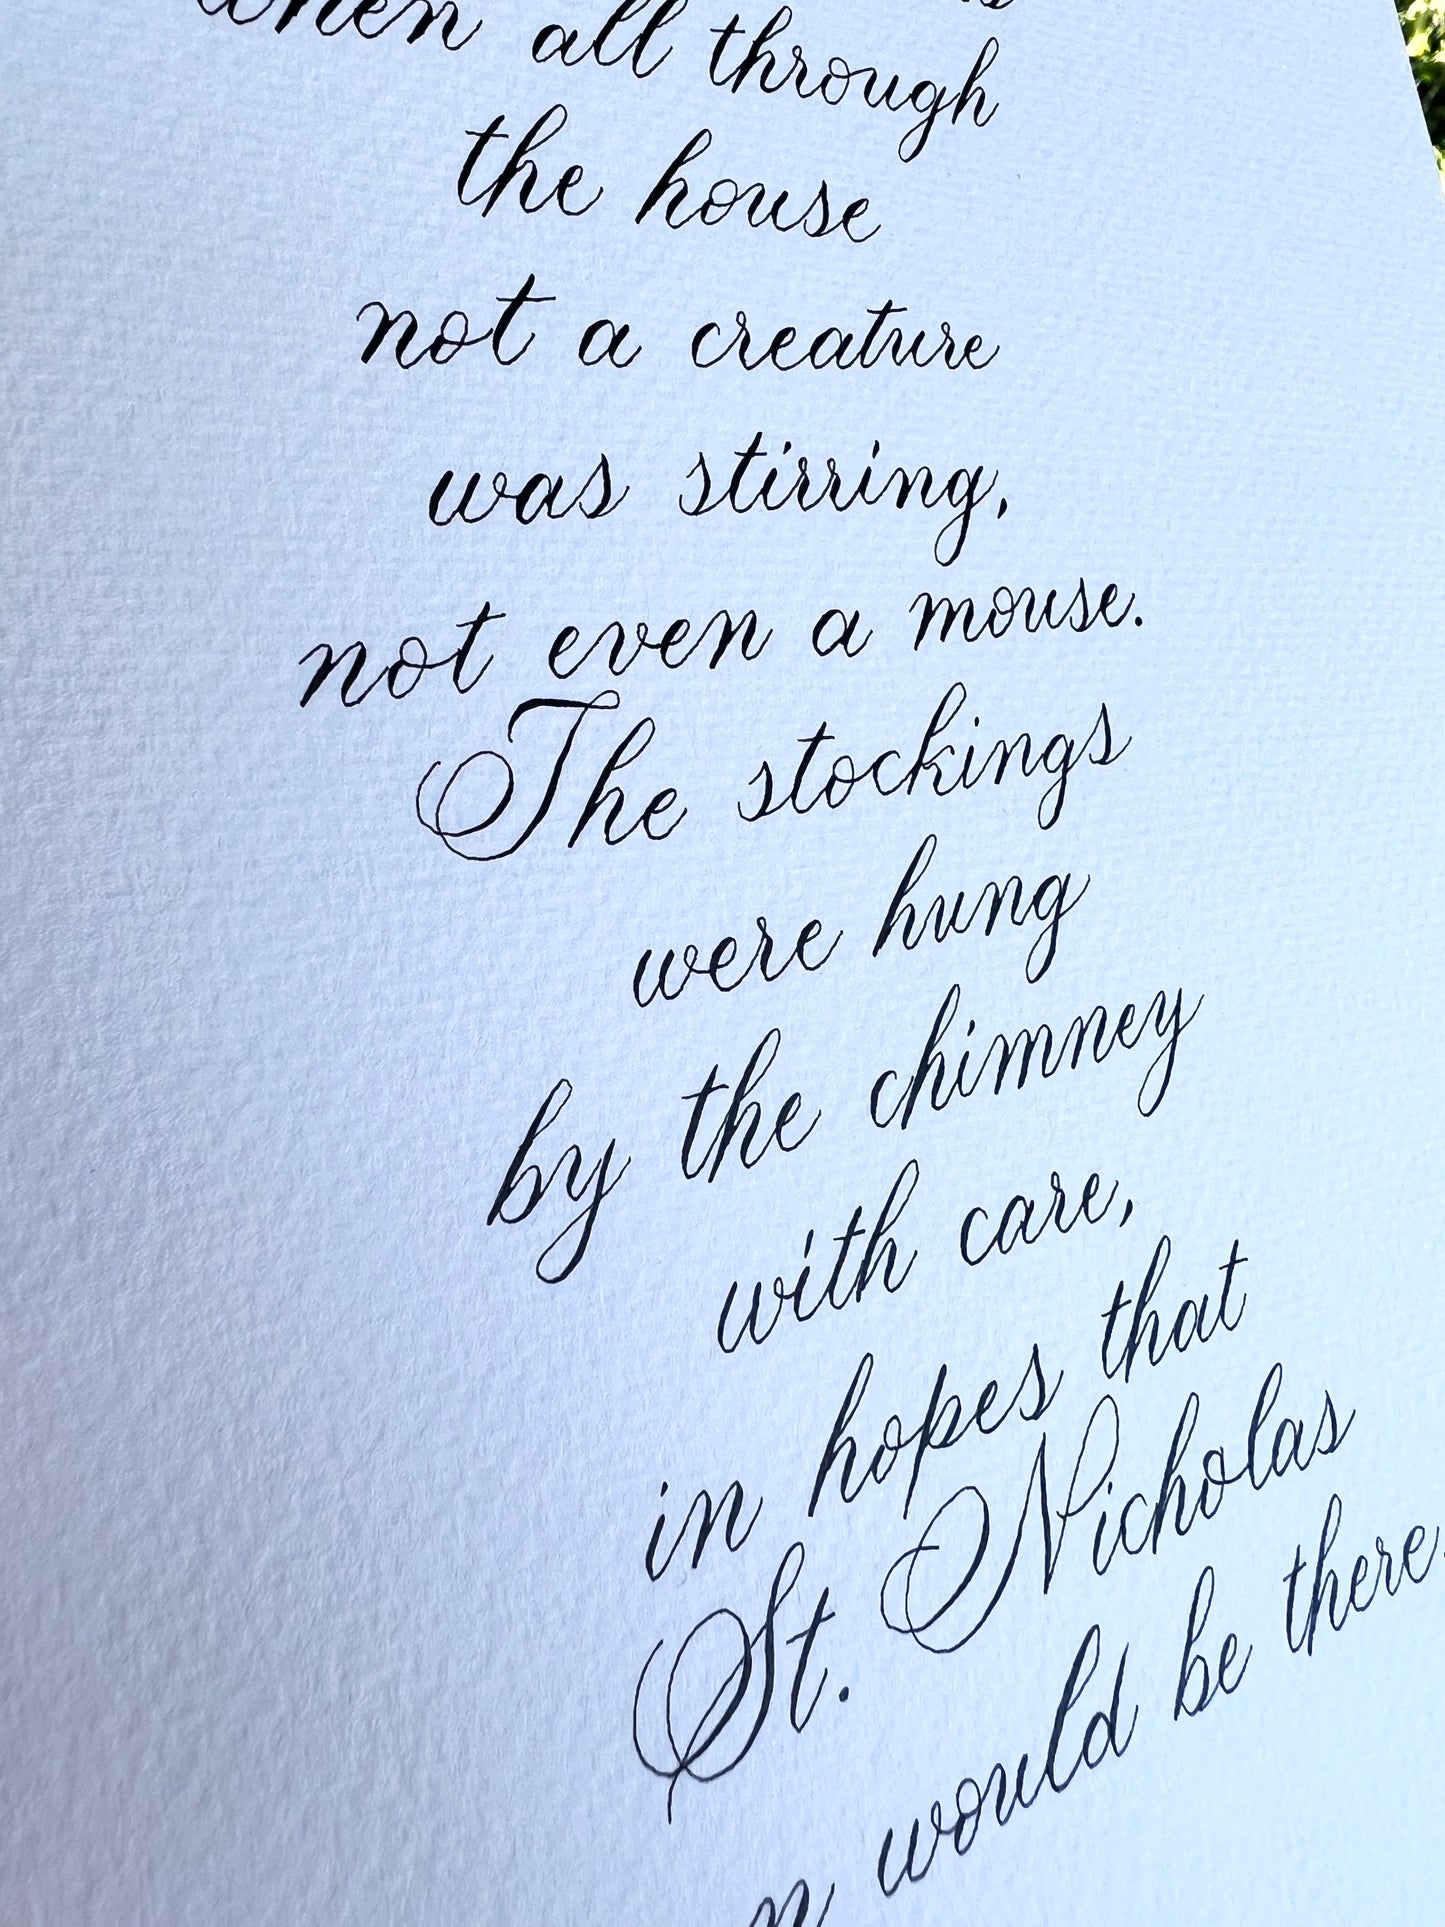 when all through
the house
not a creature
was stirring,
not even a mouse.
The stockings
were hung
by the chimney
with care,
in hopes that
St. Nicholas
would be there.